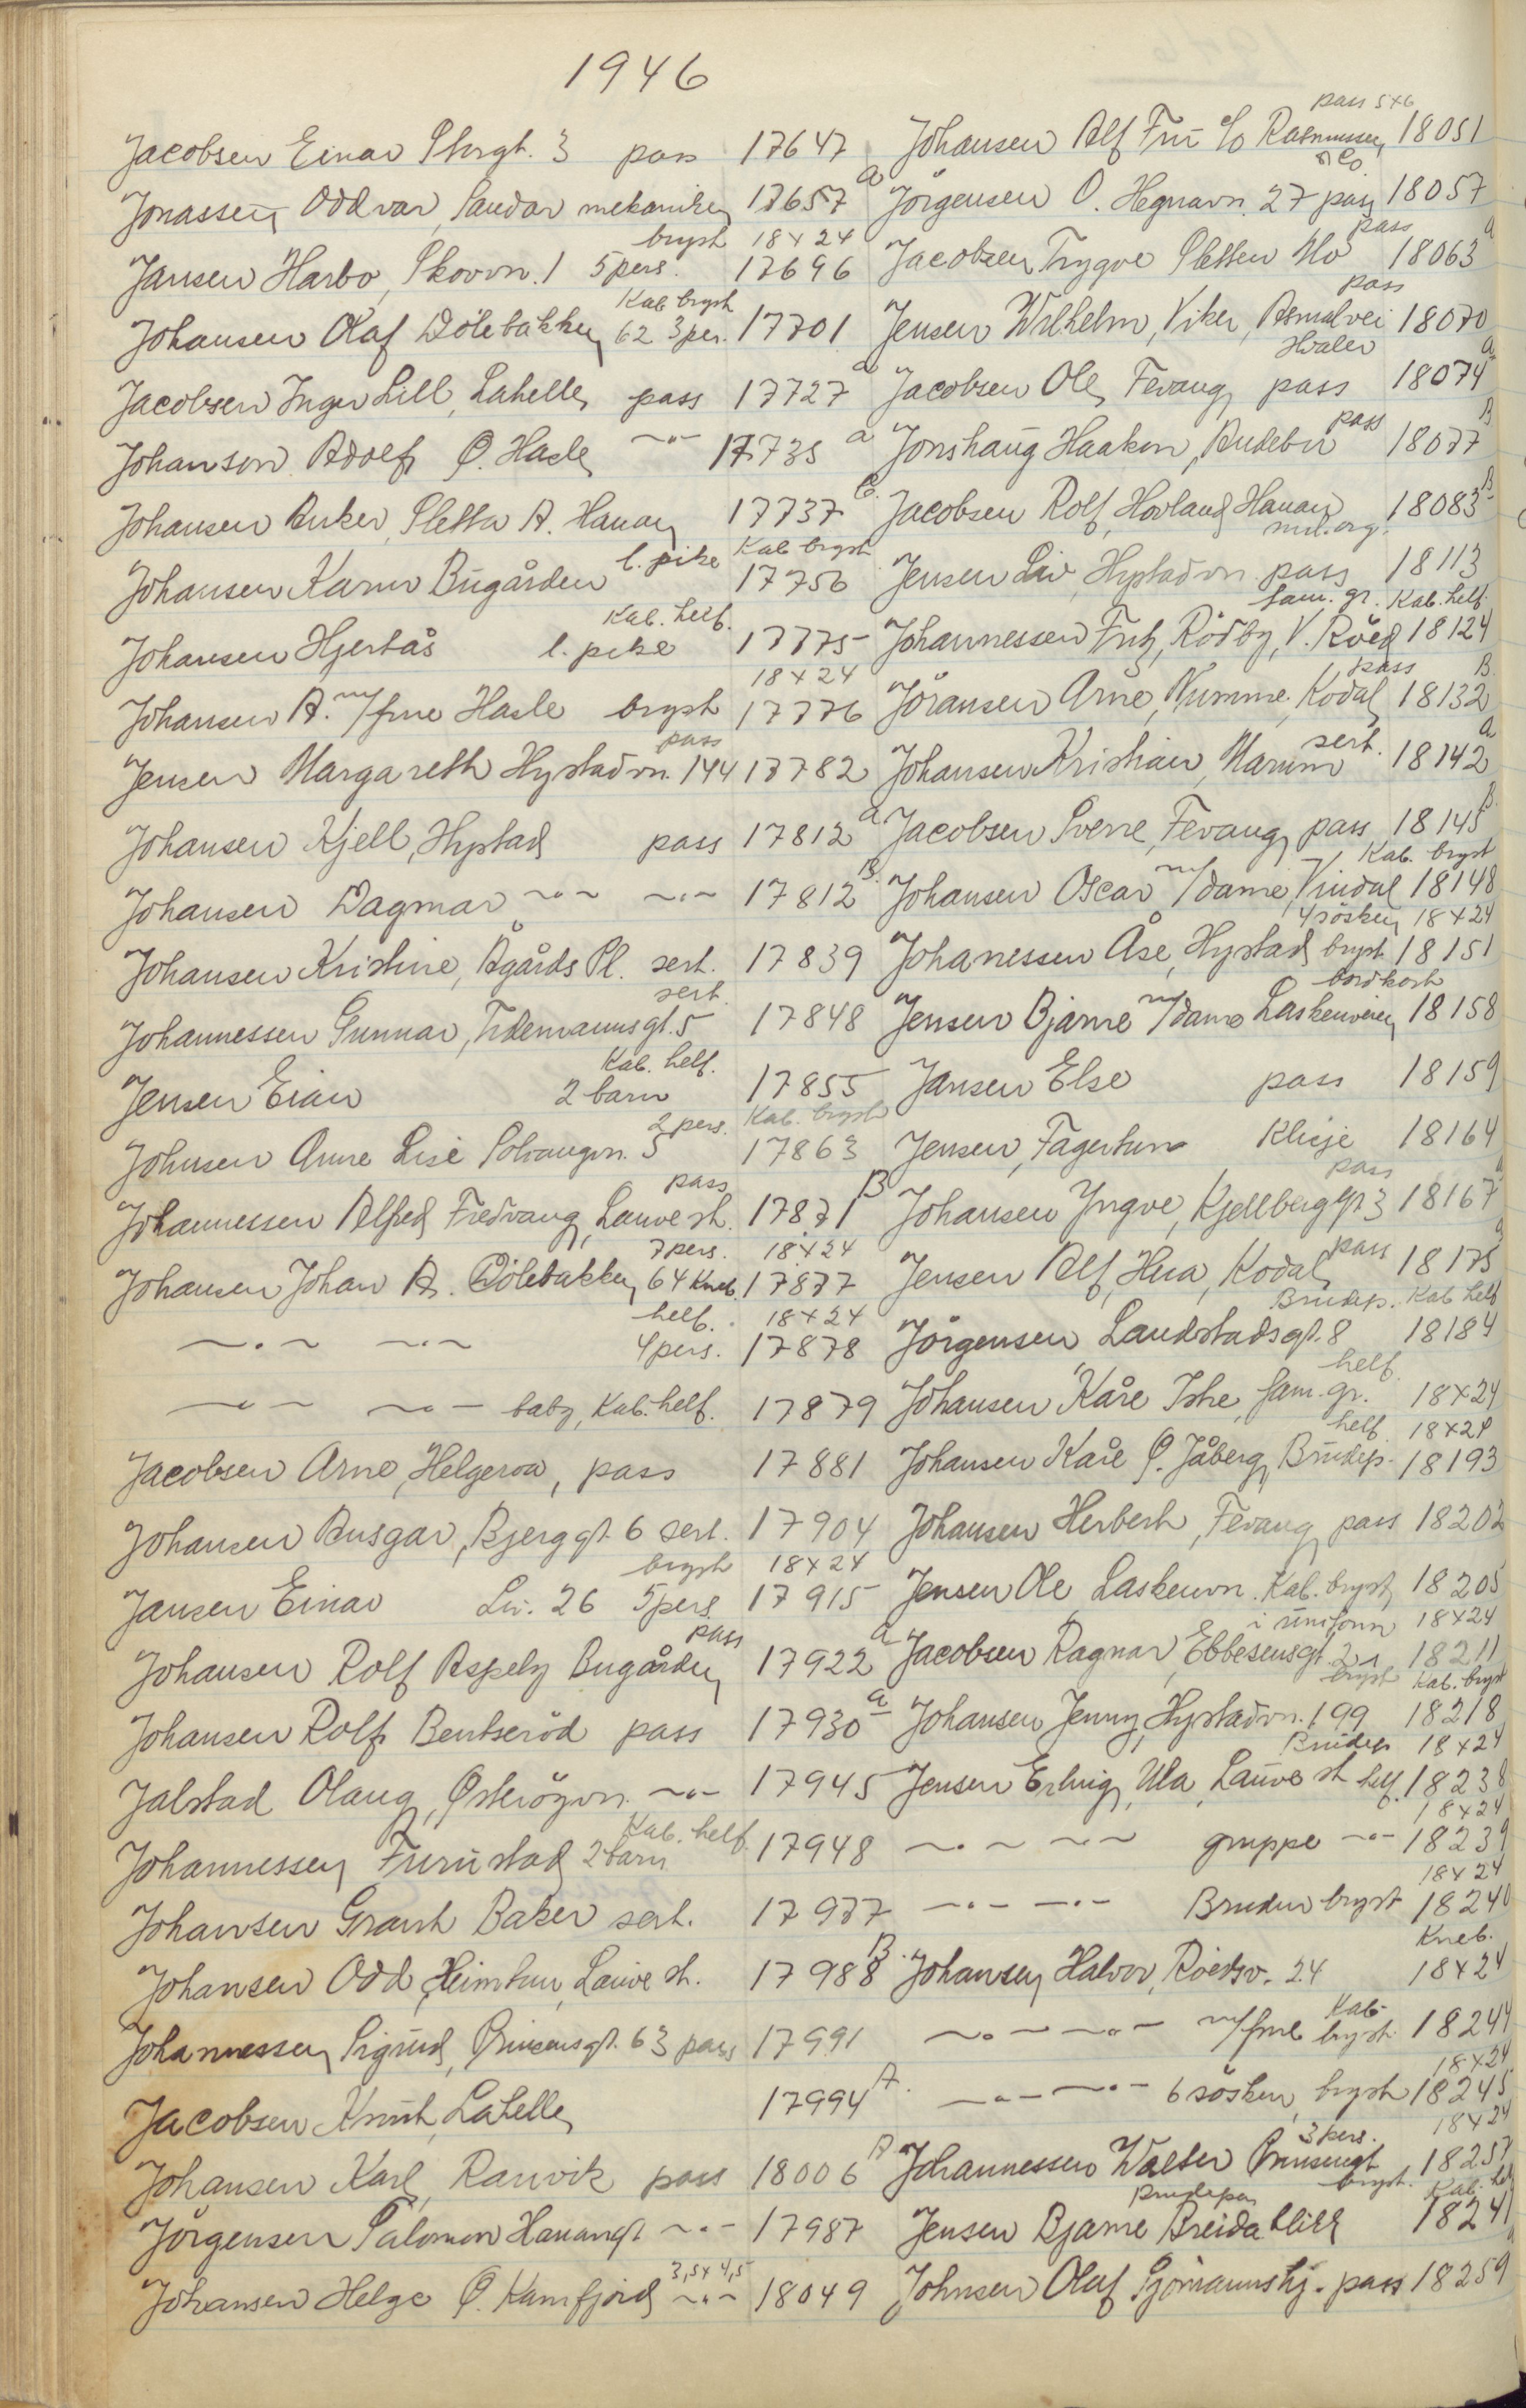 1946
Jacobsen Einar Storgt. 3 pass 17647
Jonassen Oddvar, Sandar mekaniske 17657 a
bryst 18x24
Jansen Harbo, Skovvn. 1 5 pers. 17696
Kab bryst
Johansen Olaf Dölebakken 62 3 per. 17701
Jacobsen Inger Lill, Lahelle pass 17727 a
Johanson Adolf Ø. Hasle -"- 17735 a
Johansen Anker, Sletta A. Hauan 17737 B.
l. pike Kab bryst
Johansen Karin Bugården 17756
Kab. helf.
Johansen Hjertås l. pike 17775
18x24
Johansen A. m/frue Hasle bryst 17776
pass
Jensen Margareth Hystadvn. 144 17782
Johansen Kjell, Hystad pass 17812 a
Johansen Dagmar -"- -"- 17812 B.
Johansen Kristine, Ågårds Pl. sert. 17839
sert.
Johannessen Gunnar, Tidemannsgt. 5 17848
Kab. helf.
Jensen Eian 2 barn 17855
2 pers. Kab. bryst
Johnsen Anne Lise Solvangvn. 5 17863
pass
Johannessen Alfred Fredvang, Lauve st. 17871 B
7 pers. 18x24
Johansen Johan A. Dölebakken 64 Kneb. 17877
helf. 18x24
-"- -"- 4 pers. 17878
-"- -"- baby, Kab. helf. 17879
Jacobsen Arne, Helgeroa, pass 17881
Johansen Ansgar, Bjerggt. 6 sert. 17904
bryst 18x24
Jansen Einar Lv. 26 5 pers 17915
pass
Johansen Rolf Aspely Bugården 17922 a
Johansen Rolf Bentseröd pass 17930 a
Jalstad Olaug, Østeröyvn. -"- 17945
Kab. helf.
Johannessen Furustad 2 barn 17948
Johansen Grant Baker sert. 17977
Johansen Odd, Heimtun, Lauve st. 17988 B.
Johannessen Sigurd, Prinsensgt. 63 pass 17991
Jacobsen Knut, Lahelle 17994 A.
Johansen Karl, Ranvik pass 18006 A
Jörgensen Salomon Hauangt -"- 17987
3,5x4,5
Johansen Helge Ø. Kamfjord -"- 18049
pass 5x6
Johansen Alf Fru c/o Rasmussen 18051
& Co.
Jörgensen O. Hegnavn. 27 pass 18057
pass
Jacobsen Trygve Sletten Mo 18063 a
pass
Jensen Wilhelm, Viker, Asmalvei 18070
Hvaler
Jacobsen Ole, Fevang, pass 18074 a
pass
Jonshaug Haakon, Andebu 18077 B
Jacobsen Rolf, Hovland Hauan 18083 B
mil.org.
Jensen Liv Hystadvn. pass 18113
fam. gr. Kab. helf.
Johannessen Fritz, Rödby, V. Röed 18124
pass
Jöransen Arne, Numme, Kodal 18132 B.
sert.
Johansen Kristian, Marum 18142 a
Jacobsen Sverre, Fevang, pass 18145 B
Kab. bryst
Johansen Oscar m/dame, Vindal 18148
4 sösken 18x24
Johanessen Åse, Hystad, bryst 18151
bordkort
Jensen Bjarne m/dame Laskenveien 18158
Jansen Else pass 18159
Jensen, Fagertun Klisje 18164
pass
Johansen Yngve, Kjellberggt 3 18167 a
pass
Jensen Alf, Hua, Kodal 18175
Brudep. Kab helf
Jörgensen Landstadsgt. 8 18184
helf.
Johansen Kåre Istre, fam. gr. 18x24
helf. 18x24
Johansen Kåre Ø. Jåberg, Brudep. 18193
Johansen Herbert, Fevang pass 18202
Jensen Ole Laskenvn. Kab. bryst, 18205
i uniform 18x24
Jacobsen Ragnar, Ebbesensgt. 21 18211
bryst Kab. bryst
Johansen Jenny, Hystadvn. 199 18218
Brudep 18x24
Jensen Erling, Ula, Lauve st helf. 18238
18x24
-"- -"- gruppe -"- 18239
18x24
-"- -"- Bruden bryst 18240
Kneb.
Johansen Halvor, Röedsv. 24 18x24
Kab-
-"- -"- m/frue bryst. 18244
18x24
-"- -"- 6 sösken, bryst 18245
3 pers. 18x24
Johannessen Walter Prinsensgt 18257
bryst. Kab. helf
Brudepar
Jensen Bjarne Breidablikk 18241
Johnsen Olaf Sjömannshj. pass 18259